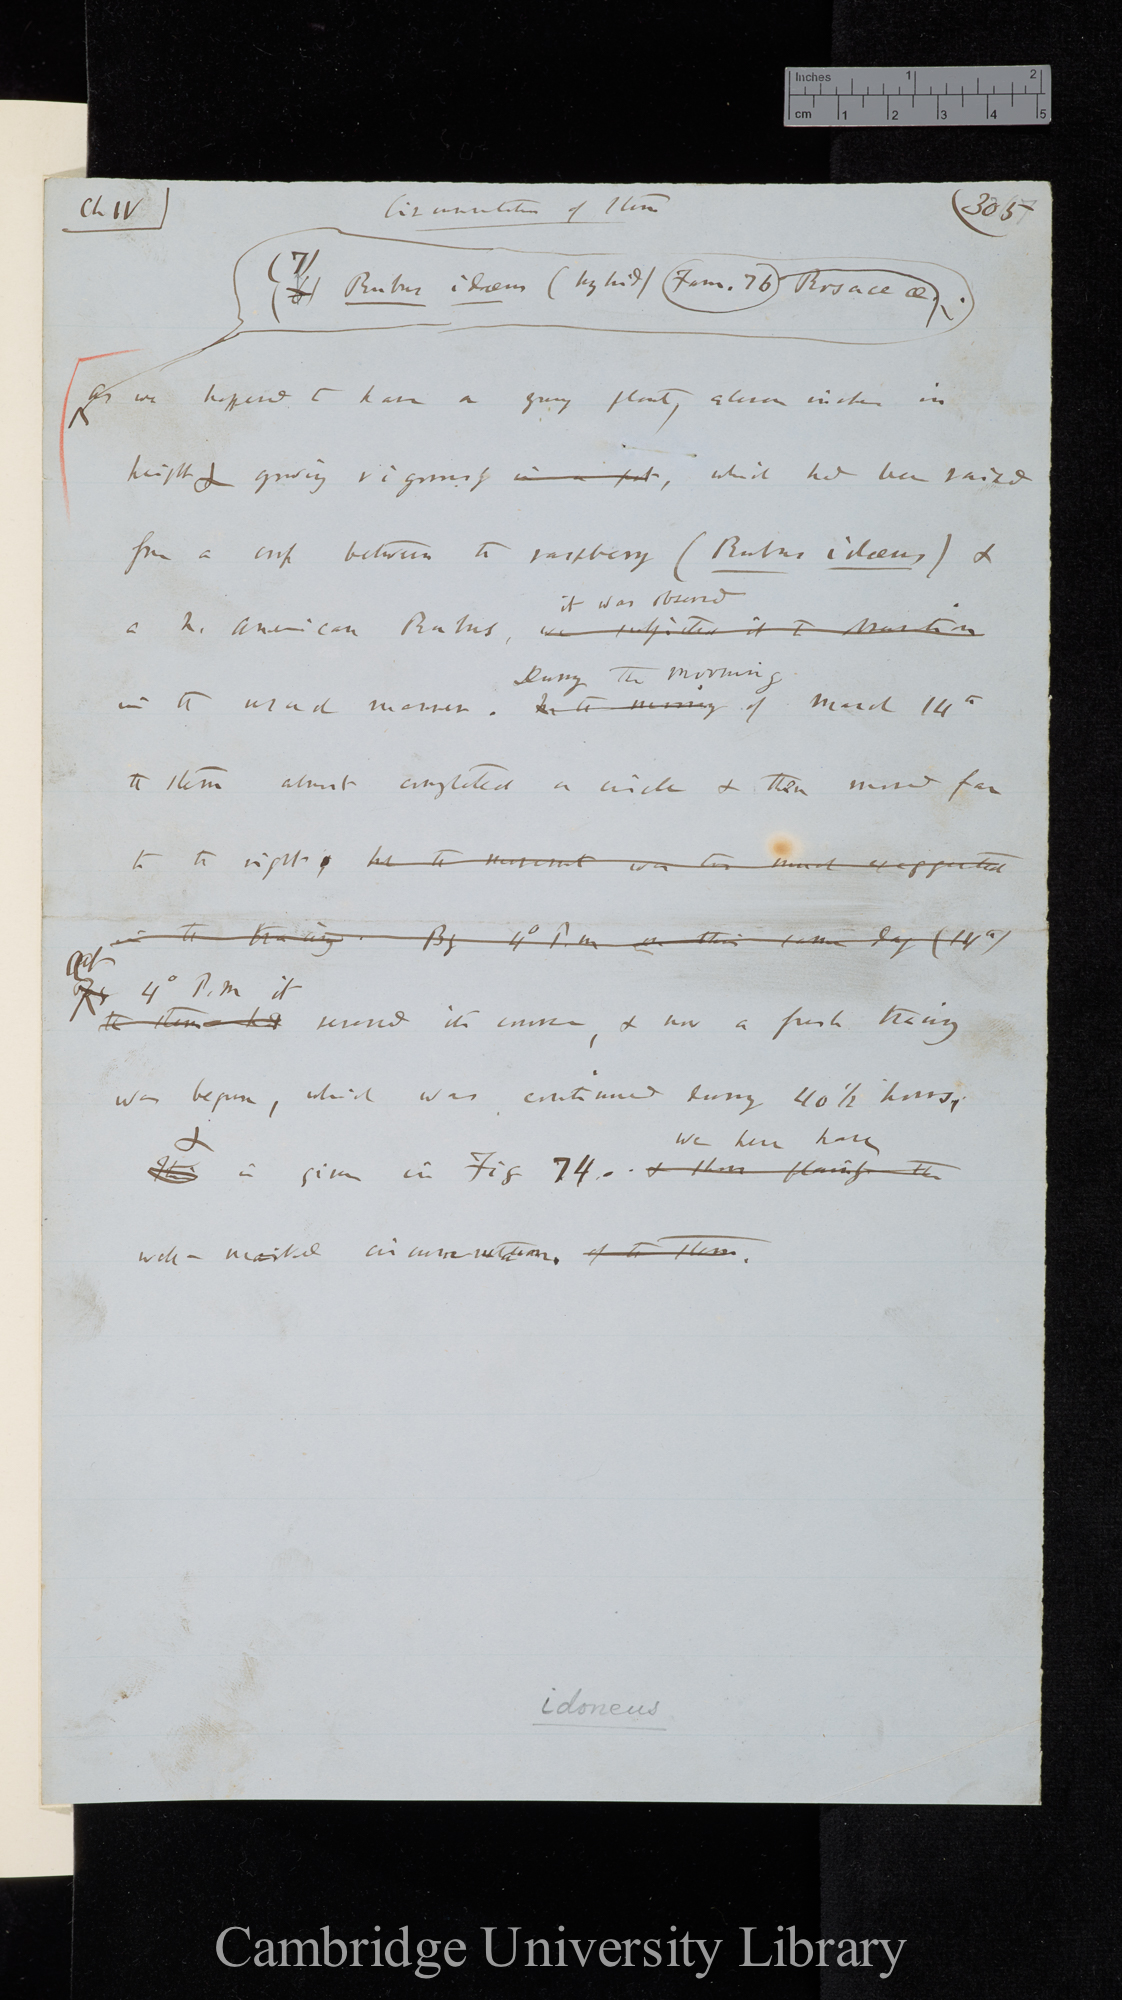 Inches 1 2
cm 1 2 3 4 5
Ch IV
Circumnutation of Stem
(305
(7) Rubus idæus (hybrid) (Fam. 76 Rosaceæ).
As we happened to have a young plant, eleven inches in
height & growing vigorously in a pot, which had been raised
from a cross between the raspberry (Rubus idæus) &
a N. American Rubus, we subjected it to observation
it was observed
in the usual manner. In the morning of March 14th
During the morning
the stem almost completed a circle & then moved far
to the right, but the movement was too much exaggerated
in the tracing. By 4° P.m on this same day (14th)
At 4° P.m it
the stem had reversed its course, & now a fresh tracing
was begun, which was continued during 40 1/2 hours,
& we here have
This is given in Fig 74. & shows plainly the
well-marked circumnutation of the stem.
idoneus
Cambridge University Library